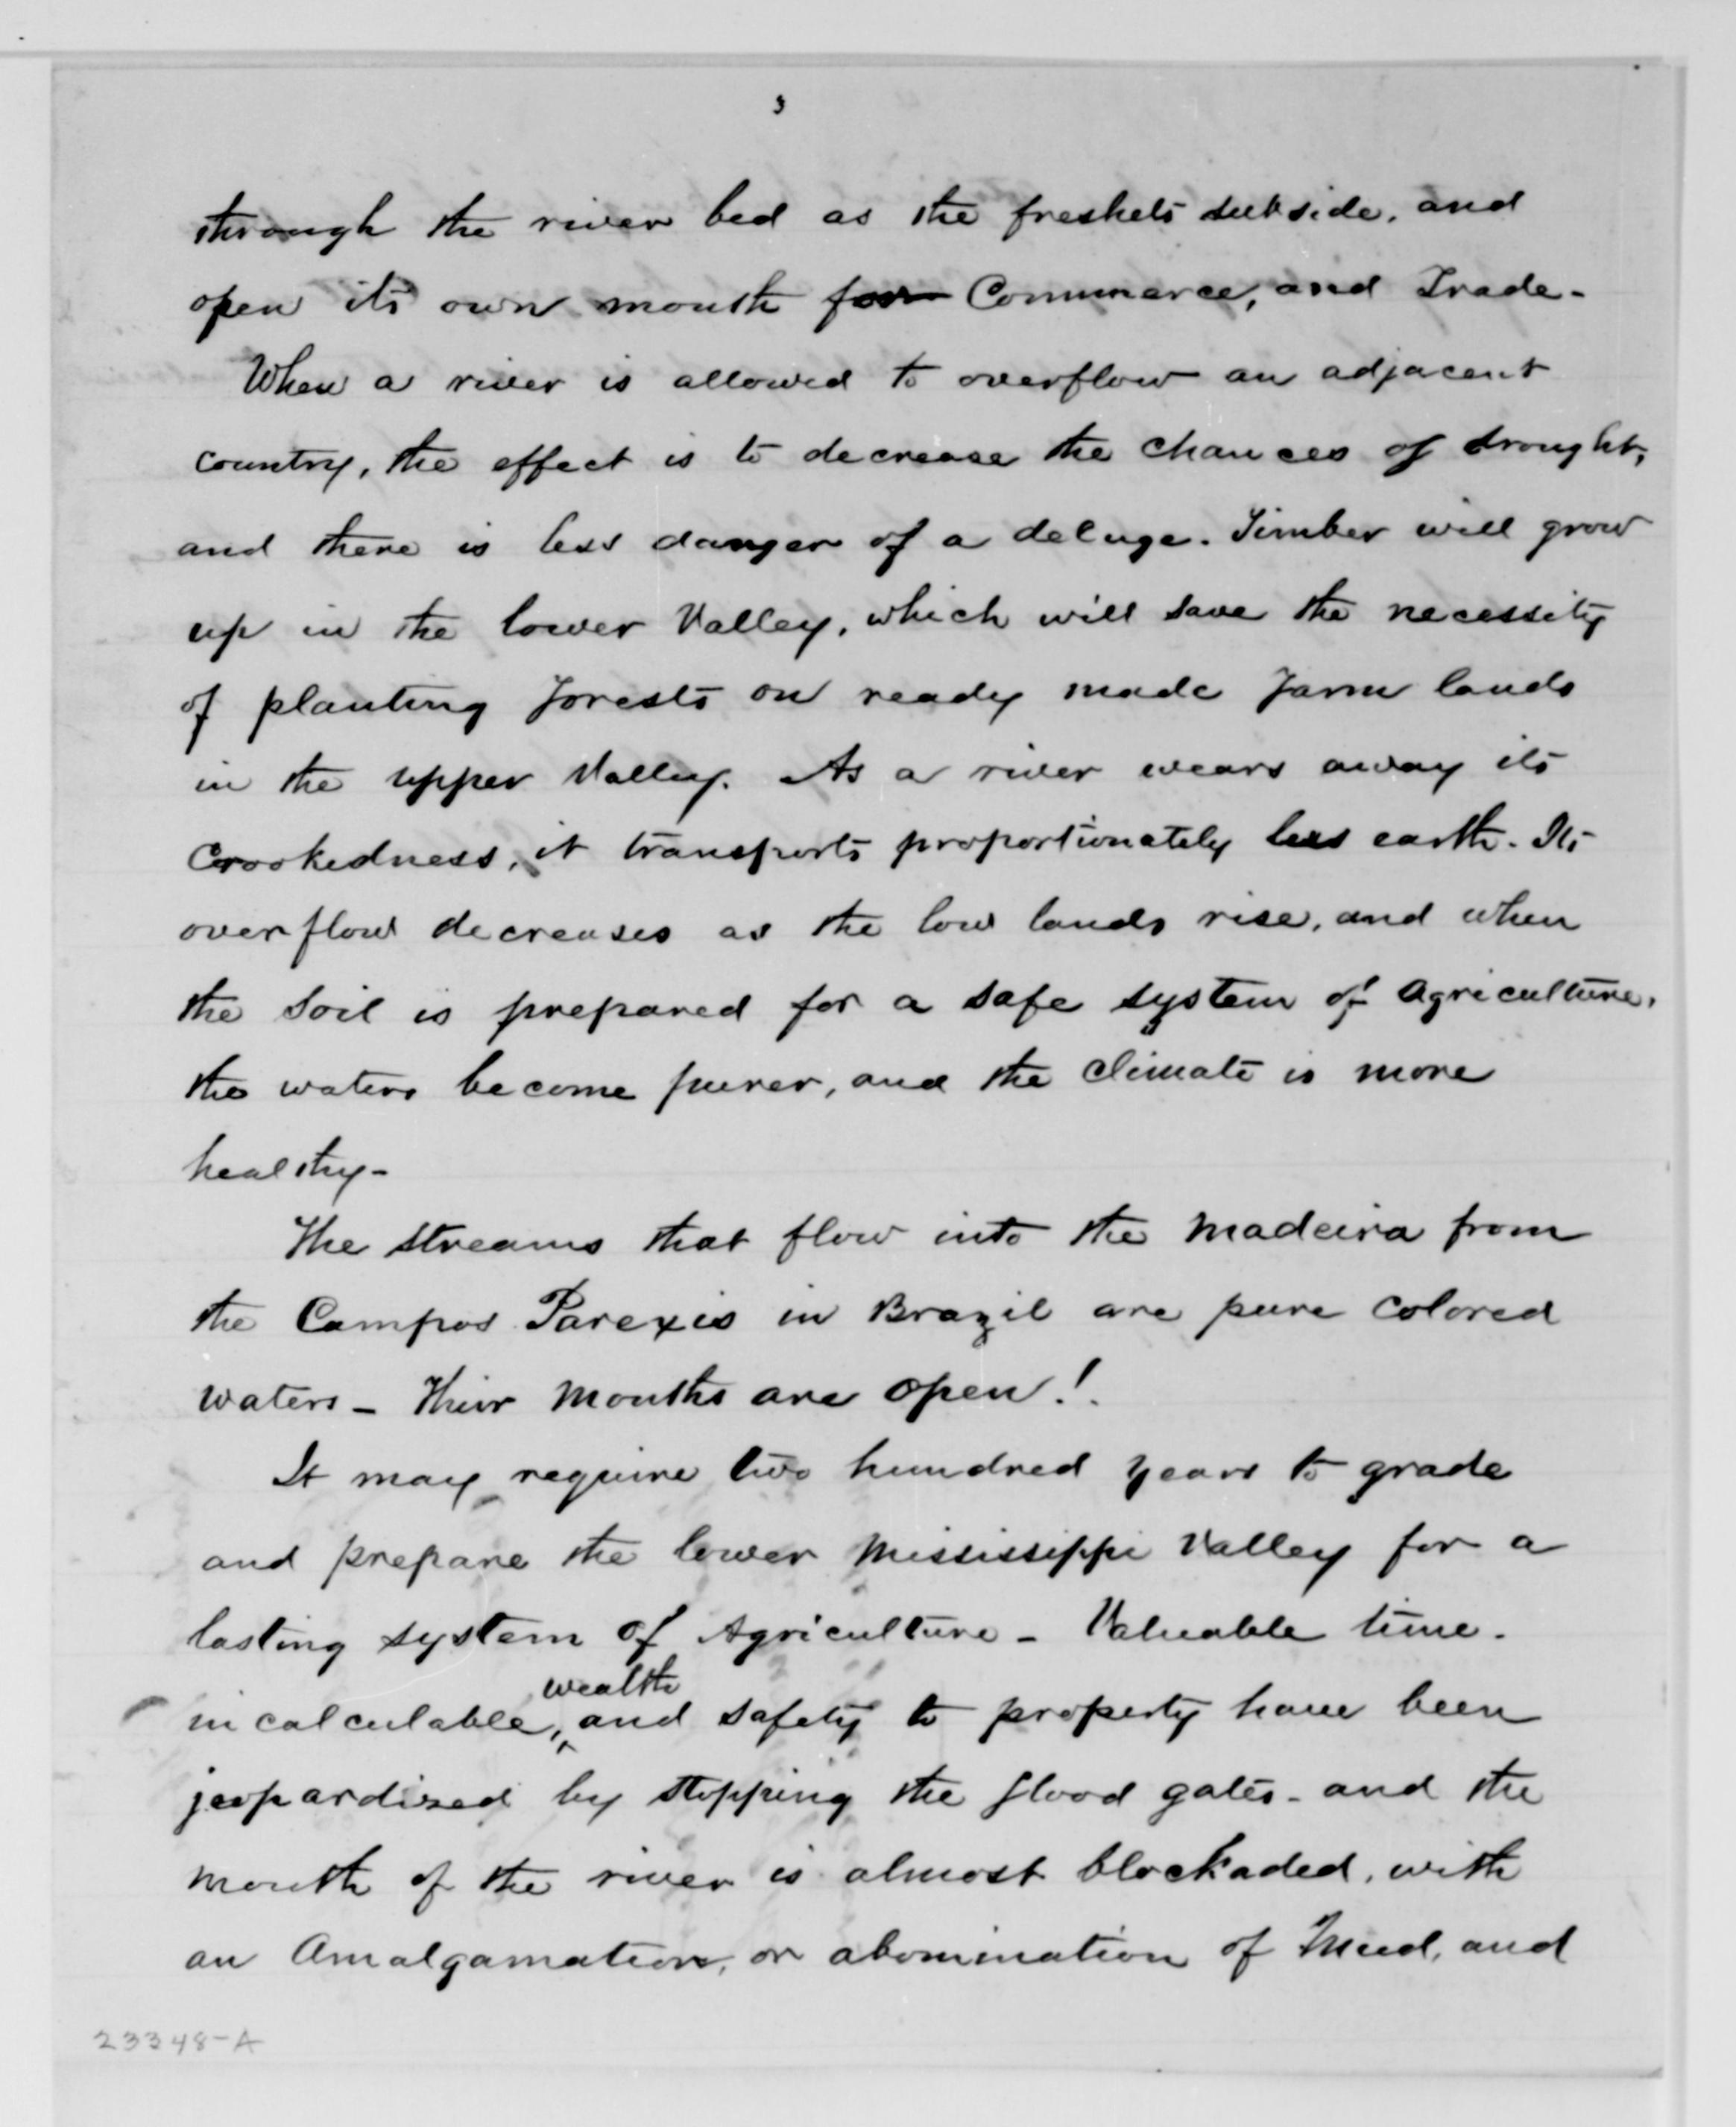 3
through the river bed as the freshets subside, and
open its own mouth for Commerce, and Trade-
When a river is allowed to overflow an adjacent
country, the effect is to decrease the chances of drought,
and there is less danger of a deluge. Timber will grow
up in the lower Valley, which will save the necessity
of planting forests on ready made farm lands
in the upper Valley. As a river wears away its
crookedness, it transports proportionately less earth. Its
overflow decreases as the low lands rise, and when
the soil is prepared for a safe system of agriculture,
the waters become purer, and the climate is more
healthy-
The streams that flow into the Madeira from
the Campos Parexis in Brazil are pure colored
waters - Their mouths are open!.
It may require two hundred years to grade
and prepare the lower Mississippi Valley for a
lasting system of Agriculture - Valuable time.
wealth
incalculable, ^ and safety to property have been
jeopardised by stopping the flood gates - and the
mouth of the river is almost blockaded, with
an Amalgamation, or abomination of Mud, and
23348-A